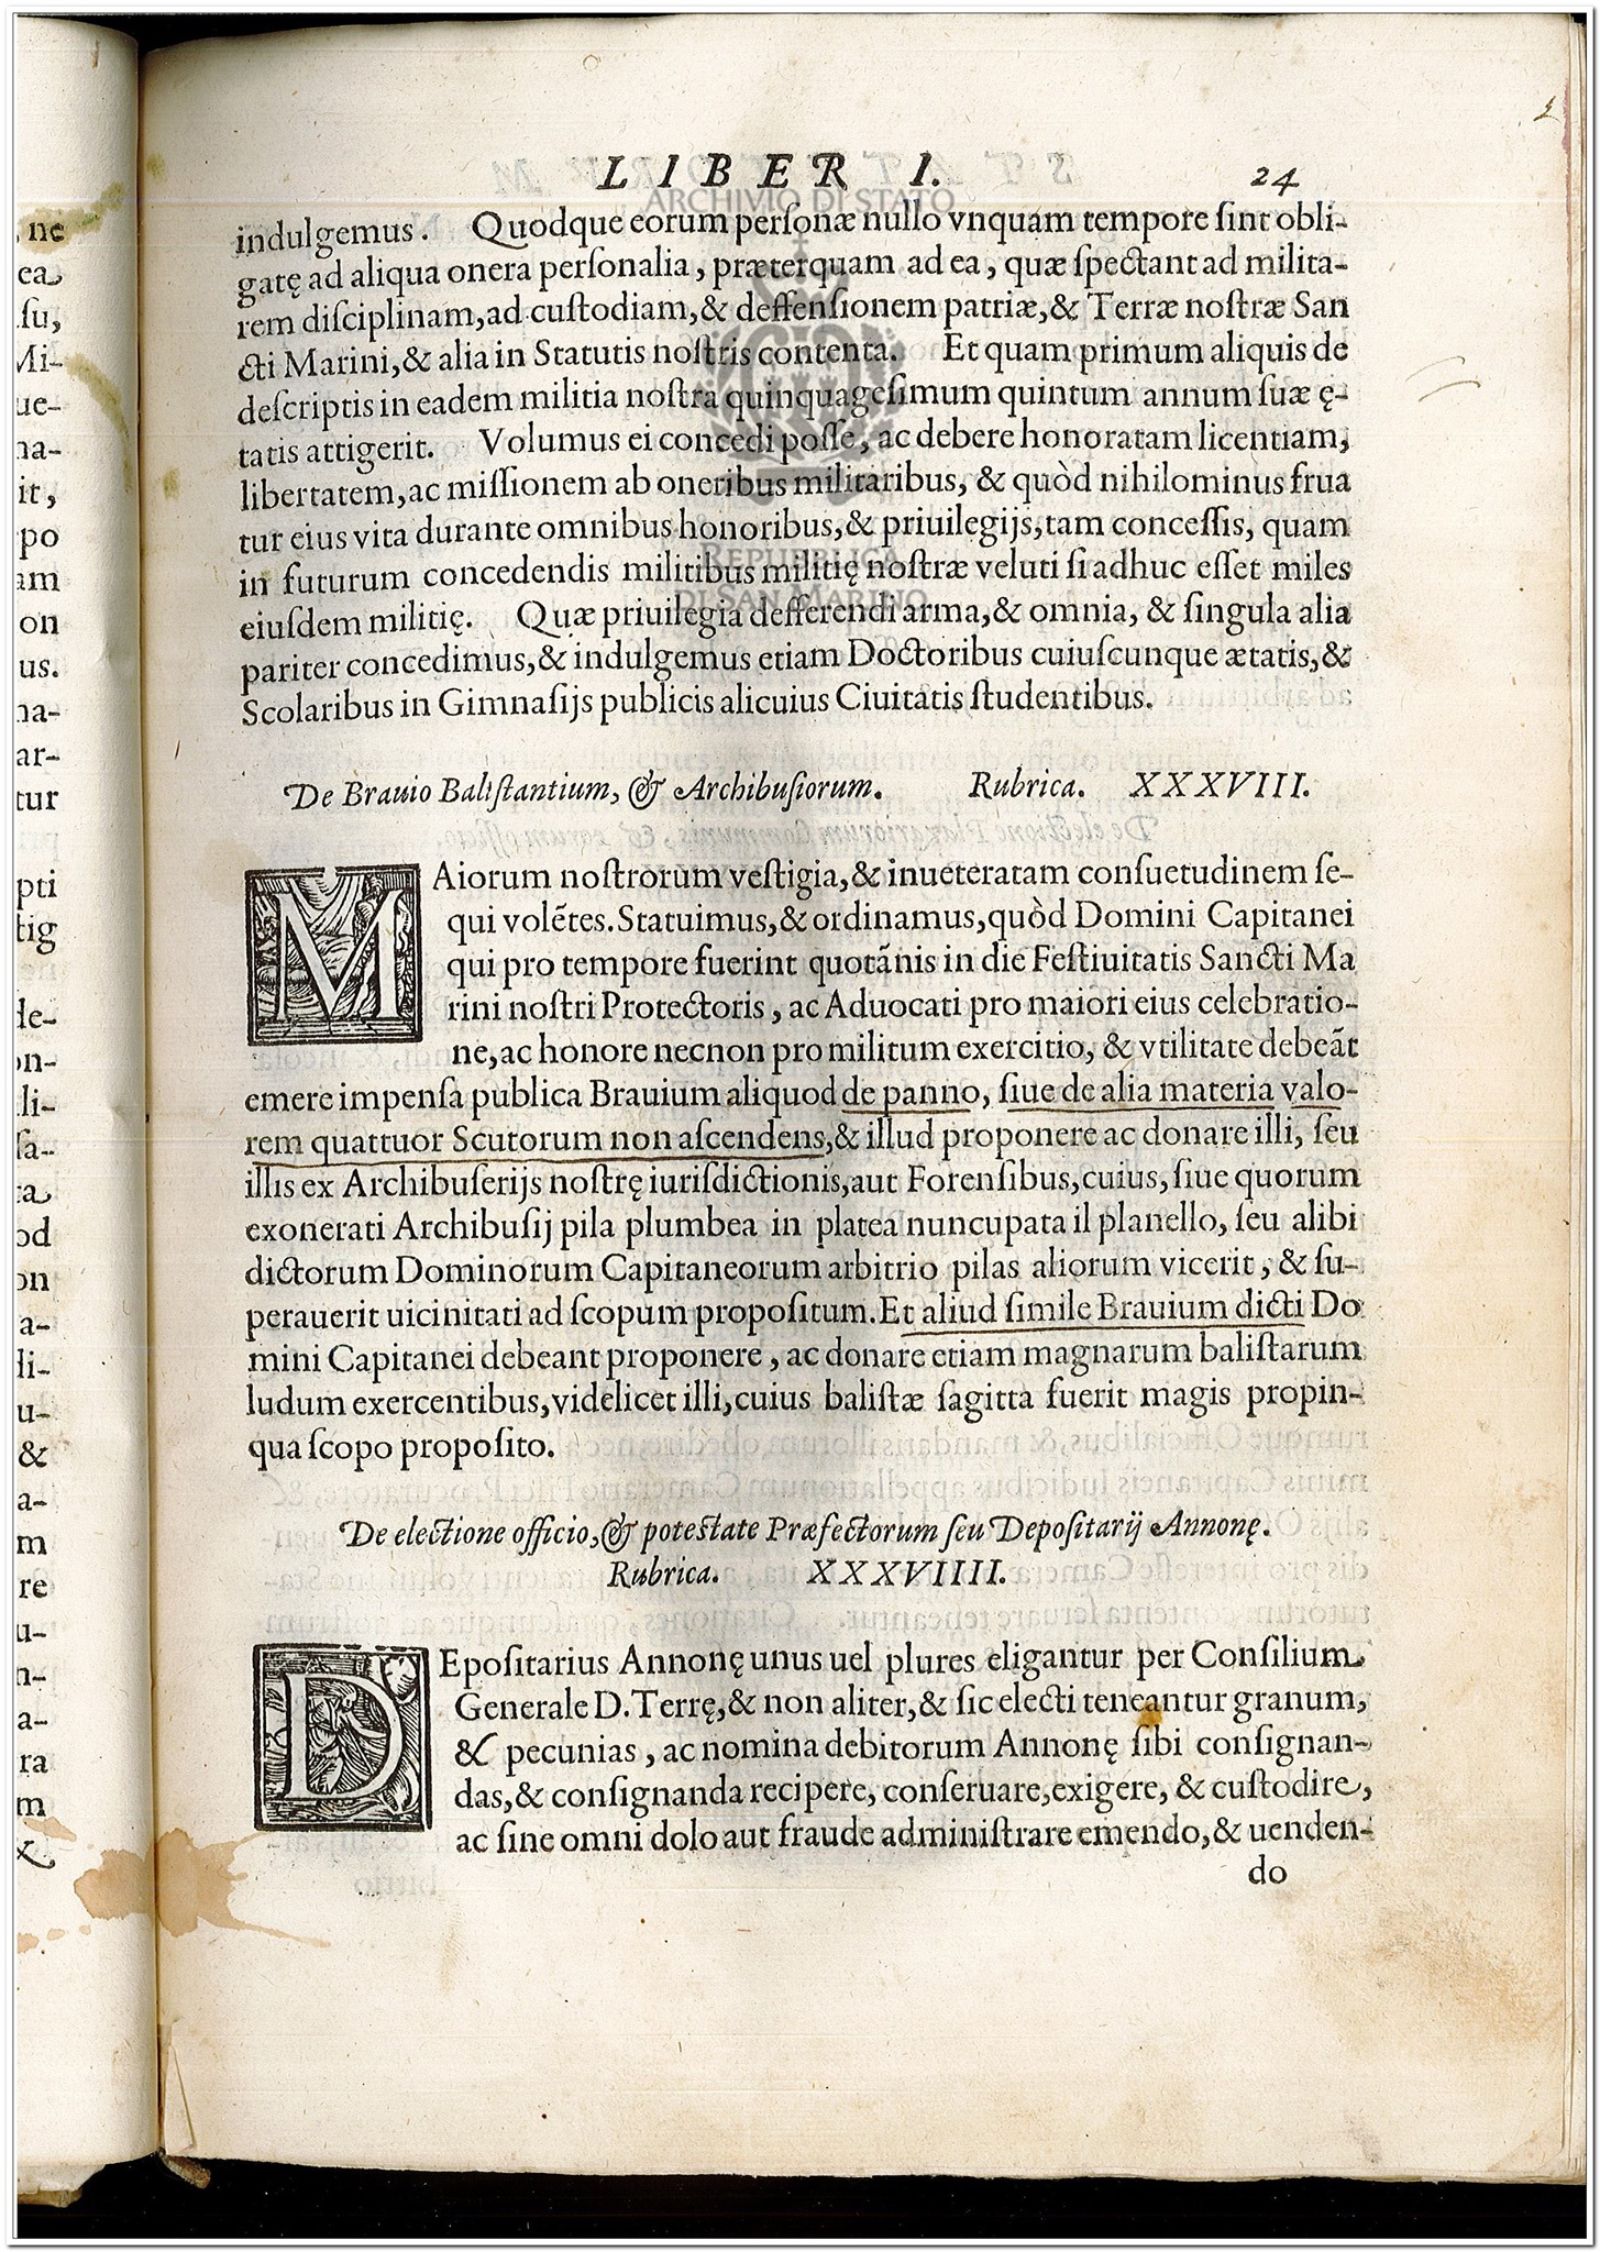 LIBER I. 24
indulgemus. Quodque eorum perſonæ nullo vnquam tempore ſint obli-
gatę ad aliqua onera perſonalia, præterquam ad ea, quæ ſpectant ad milita-
rem diſciplinam, ad cuſtodiam, & deffenſionem patriæ, & Terræ noſtræ San
cti Marini, & alia in Statutis noſtris contenta. Et quam primum aliquis de
deſcriptis in eadem militia noſtra quinquageſimum quintum annum ſuæ ę-
tatis attigerit. Volumus ei concedi poſſe, ac debere honoratam licentiam,
libertatem, ac miſſionem ab oneribus militaribus, & quòd nihilominus frua
tur eius vita durante omnibus honoribus, & priuilegijs, tam conceſſis, quam
in futurum concedendis militibus militię noſtræ veluti ſi adhuc eſſet miles
eiuſdem militię. Quæ priuilegia defferendi arma, & omnia, & ſingula alia
pariter concedimus, & indulgemus etiam Doctoribus cuiuſcunque ætatis, &
Scolaribus in Gimnaſijs publicis alicuius Ciuitatis ſtudentibus.
De Brauio Baliſtantium, & Archibuſiorum. Rubrica. XXXVIII.
MAiorum noſtrorum veſtigia, & inueteratam conſuetudinem ſe-
qui volẽtes. Statuimus, & ordinamus, quòd Domini Capitanei
qui pro tempore fuerint quotãnis in die Feſtiuitatis Sancti Ma
rini noſtri Protectoris, ac Aduocati pro maiori eius celebratio-
ne, ac honore necnon pro militum exercitio, & vtilitate debeãt
emere impenſa publica Brauium aliquod de panno, ſiue de alia materia valo-
rem quattuor Scutorum non aſcendens, & illud proponere ac donare illi, ſeu
illis ex Archibuſerijs noſtrę iuriſdictionis, aut Forenſibus, cuius, ſiue quorum
exonerati Archibuſij pila plumbea in platea nuncupata il planello, ſeu alibi
dictorum Dominorum Capitaneorum arbitrio pilas aliorum vicerit, & ſu-
perauerit uicinitati ad ſcopum propoſitum. Et aliud ſimile Brauium dicti Do
mini Capitanei debeant proponere, ac donare etiam magnarum baliſtarum
ludum exercentibus, videlicet illi, cuius baliſtæ ſagitta fuerit magis propin-
qua ſcopo propoſito.
De electione officio, & poteſtate Præfectorum ſeu Depoſitarij Annonę.
Rubrica. XXXVIIII.
DEpoſitarius Annonę unus uel plures eligantur per Conſilium
Generale D. Terrę, & non aliter, & ſic electi teneantur granum,
& pecunias, ac nomina debitorum Annonę ſibi conſignan-
das, & conſignanda recipere, conſeruare, exigere, & cuſtodire,
ac ſine omni dolo aut fraude adminiſtrare emendo, & uenden-
do
ARCHIVIO DI STATO
REPUBBLICA
DI SAN MARINO